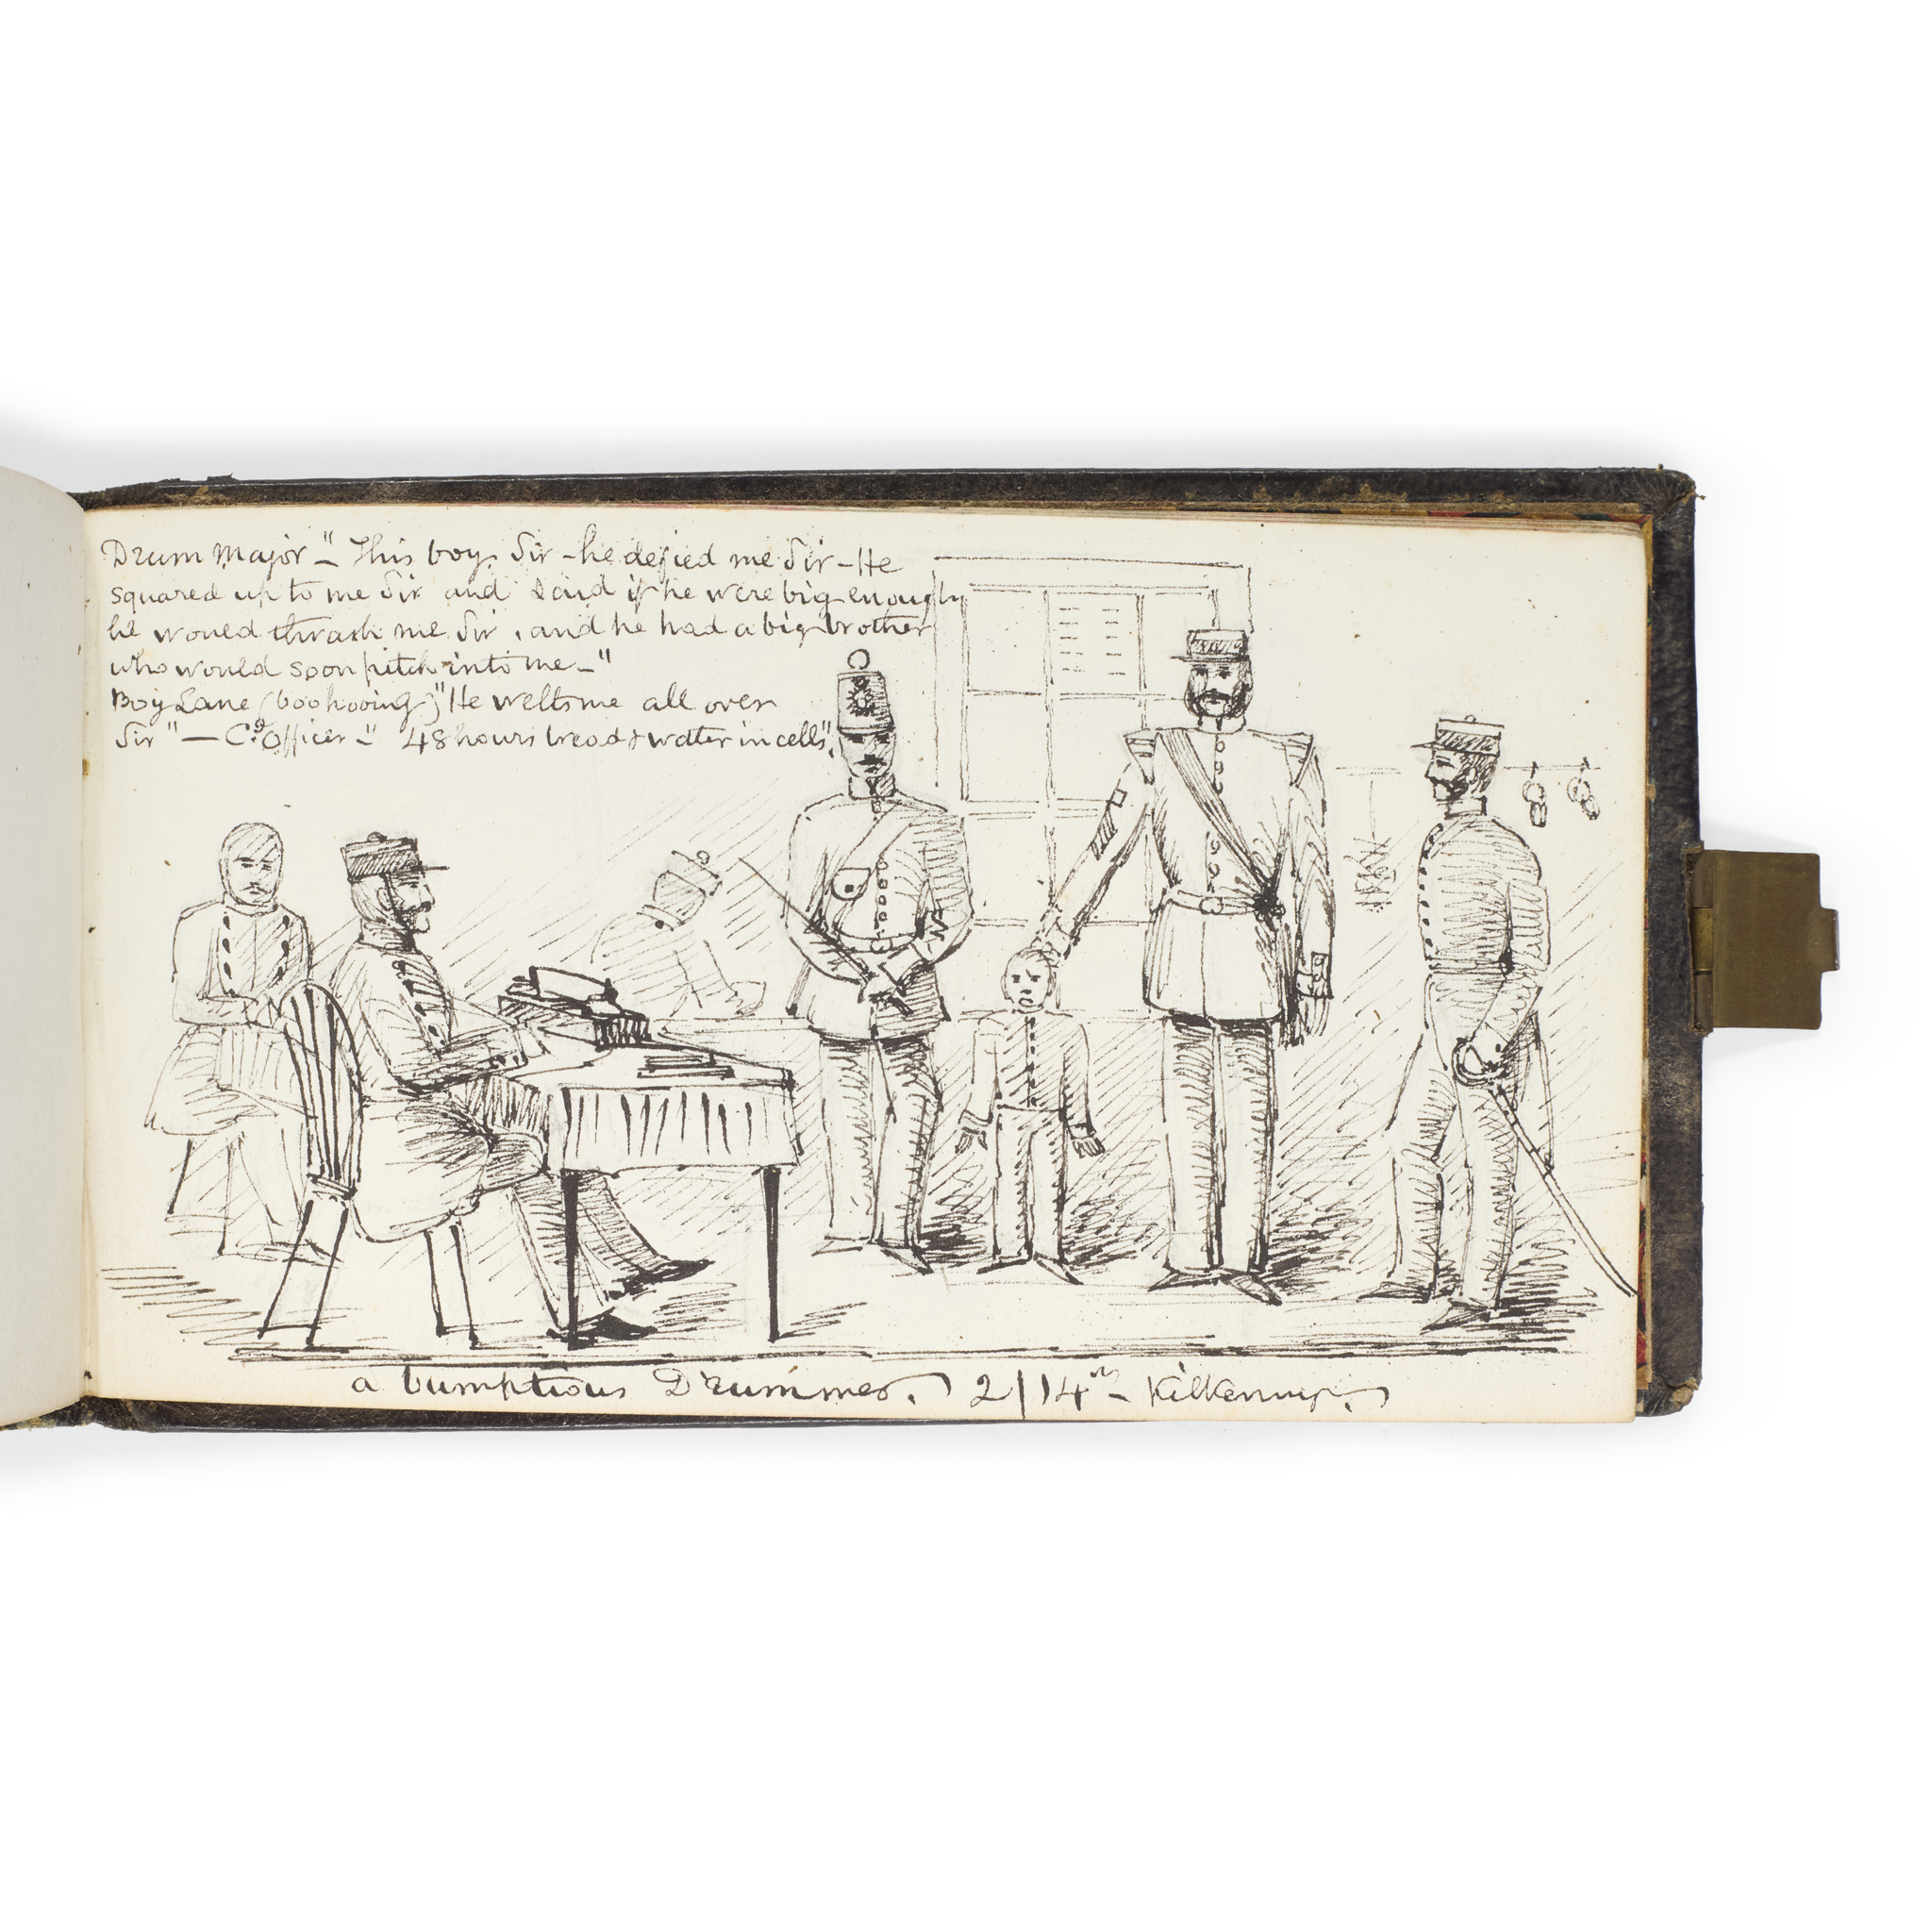 Drum Major "– This boy Sir – he defied me Sir – He
squared up to me Sir and said if he were big enough
he would thrash me Sir, and he had a big brother
who would soon pitch into me –"
Boy Lane (boohooing) "He welts me all over
Sir" – Cg Officer –" 48 hours bread & water in cells".
a bumptious Drummer. 2/14th – Kilkenny.